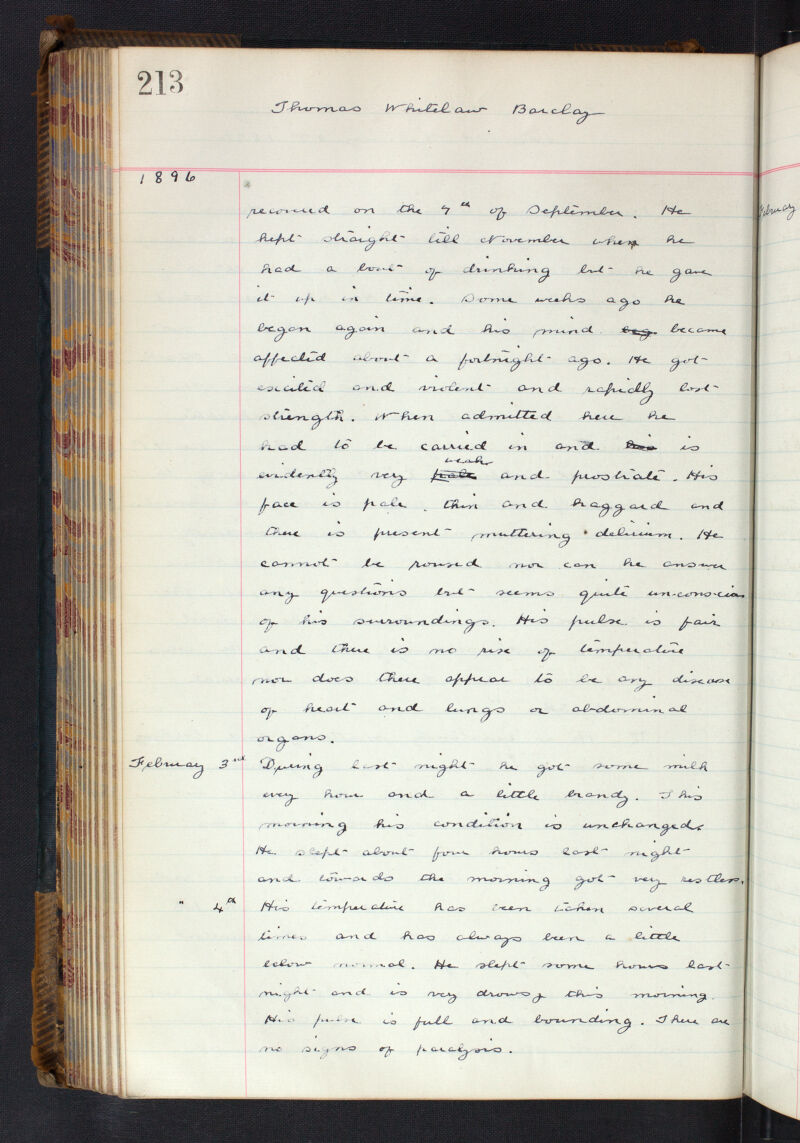 213
Thomas Whitelaw Barclay
1896
recovered on the 7th of September. He
kept straight till November when he
had a bout of drinking but he gave
it up in time. Some weeks ago he
began again and his mind beg became
affected about a fortnight ago. He got
excited and violent and rapidly lost
strength. When admitted here he
had to be carried in and his is
weak
evidently very pale and prostrate. His
face is pale, thin and haggard and
there is present muttering delirium. He
cannot be roused nor can he answer
any questions but seems quite unconscious
of his surroundings. His pulse is fair
and there is no rise of temperature
nor does there appear to be any disease
of heart and lungs or abdominal
organs.
February 3rd During last night he got some milk
every hour and a little brandy. This
morning his condition is unchanged.
He slept about four hours last night
and towards the morning got very restless.
" 4th His temperature has been taken several
times and has always been a little
below normal. He slept some hours last
night and is very drowsy this morning.
His pulse is full and bounding. There are
no signs of paralysis.
February